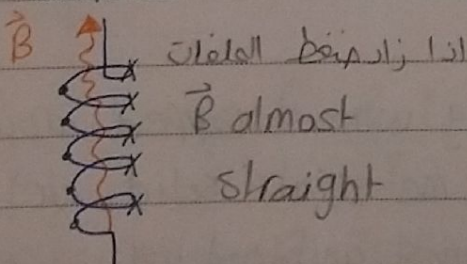 B
اذا زاد ضغط الملفات
B almost
straight